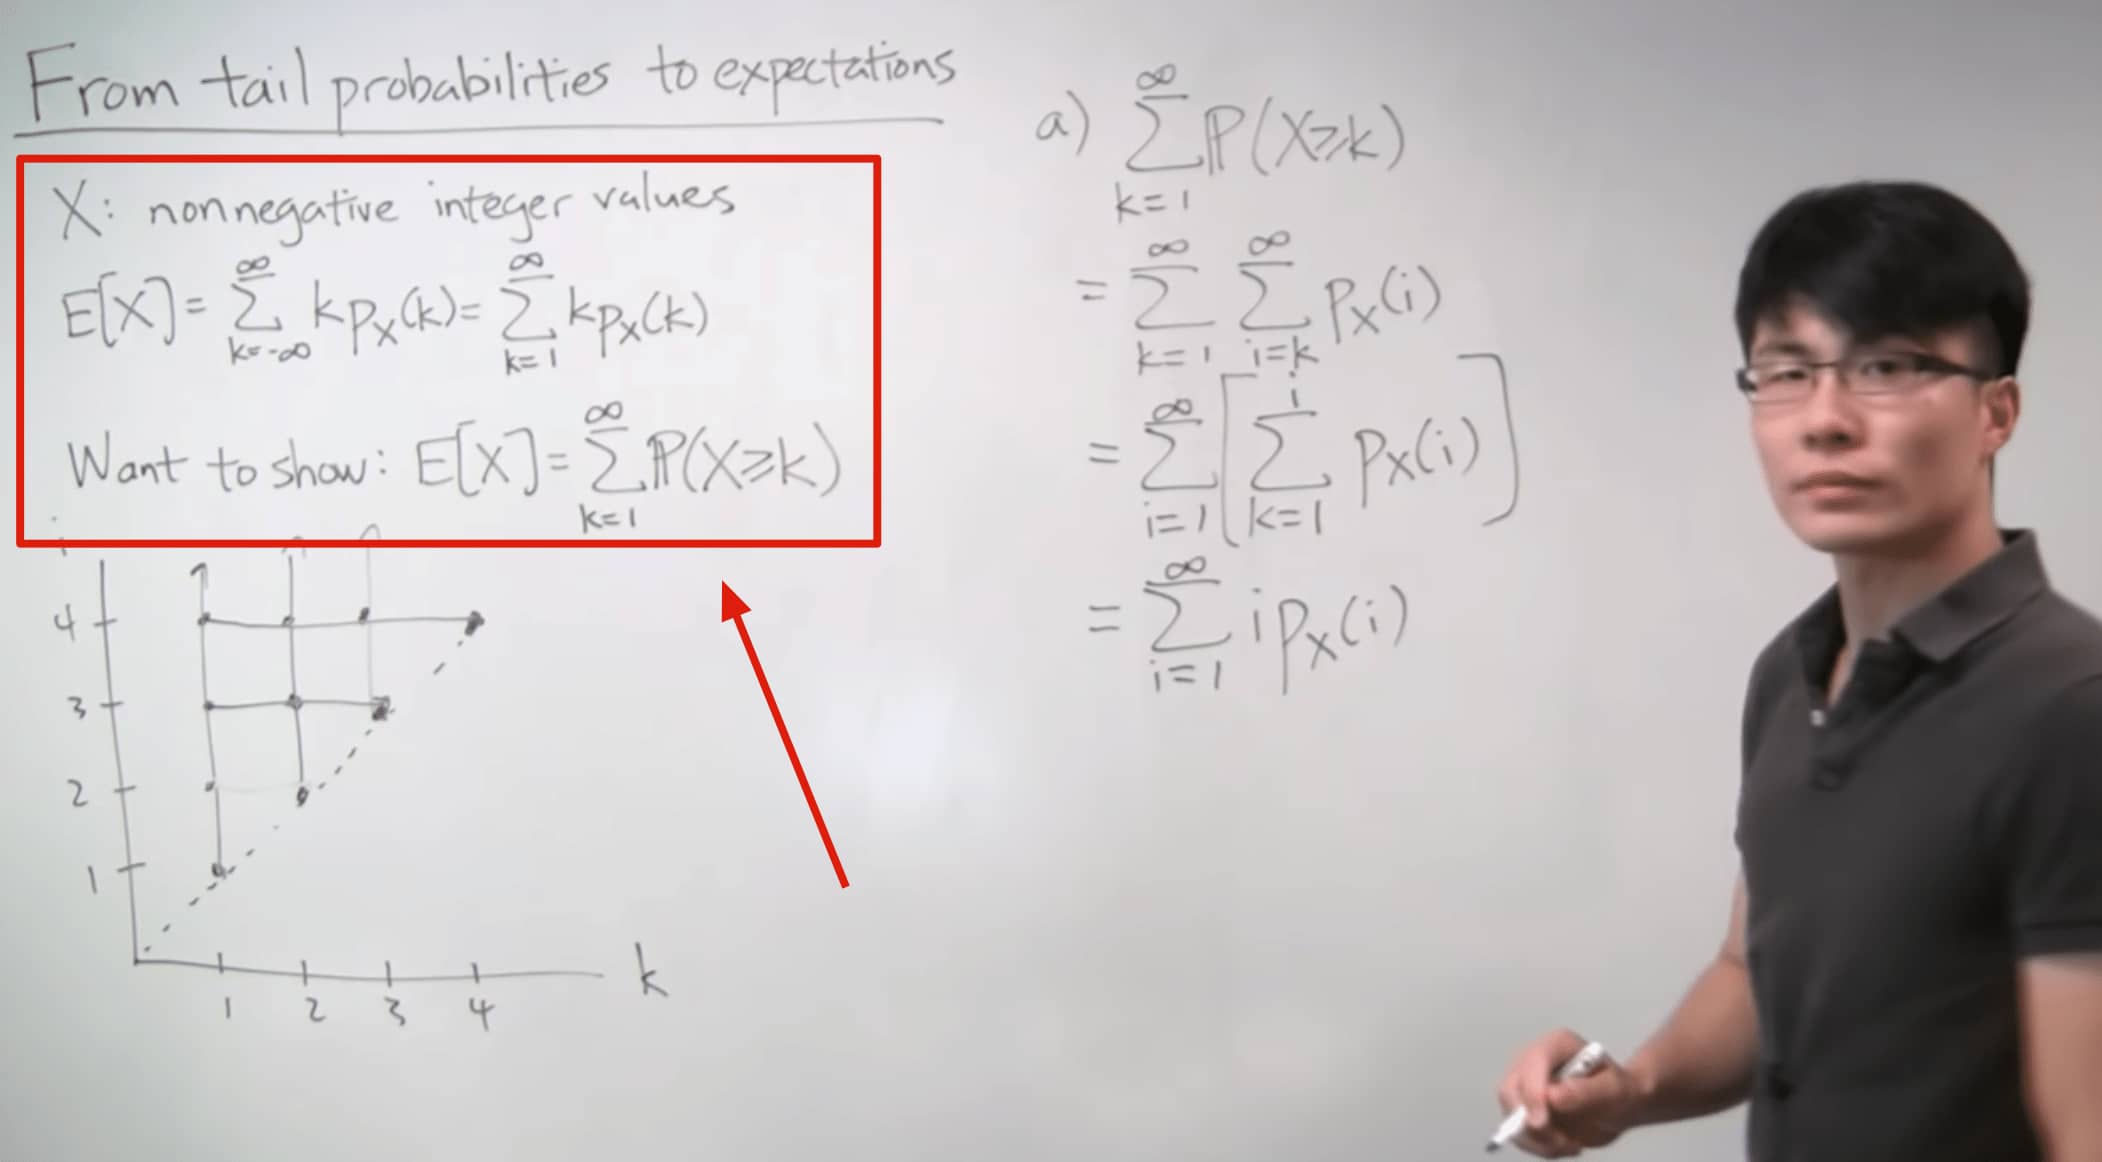 From tail probabilities to expectations
X: nonnegative integer values
E[X] = ∑_{k=-∞}^{∞} k p_X(k) = ∑_{k=1}^{∞} k p_X(k)
Want to show: E[X] = ∑_{k=1}^{∞} ℙ(X≥k)
i
4
3
2
1
1 2 3 4
k
a) ∑_{k=1}^{∞} ℙ(X≥k)
= ∑_{k=1}^{∞} ∑_{i=k}^{∞} p_X(i)
= ∑_{i=1}^{∞} [ ∑_{k=1}^{i} p_X(i) ]
= ∑_{i=1}^{∞} i p_X(i)